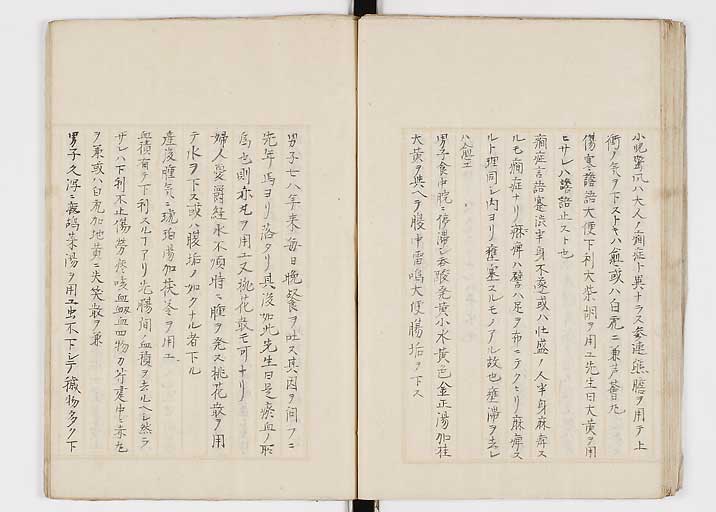 小児驚風ハ大人ノ癇症ト異ナラス参連熊膽ヲ用テ上
衝ノ気ヲ下ストキハ愈或ハ白虎ニ兼芦薈丸
傷寒譫語大便下利大柴胡ヲ用ユ先生曰大黄ヲ用
ニサレハ譫語止スト也
癇症言語蹇渋半身不遂或ハ壮盛ノ人半身麻痺ス
ルモ癇症ナリ麻痺ハ譬ハ足ヲ布ニテククリ麻痺ス
ルト理同シ内ヨリ壅塞スルモノアル故也壅滞ヲ去レ
ハ愈ユ
男子食中脘ニ停滞シ呑酸発黄小水黄色金正湯加桂
大黄ヲ與ヘテ腹中雷鳴大便腸垢ヲ下ス
男子七八年来毎日晩餐ヲ吐ス其因ヲ問フニ
先年馬ヨリ落タリ其後如此先生曰是瘀血ノ所
為也則赤丸ヲ用ユ又桃花散モ可ナリ
婦人憂鬱経水不順時ニ腹ヲ発ス桃花散ヲ用
テ水ヲ下ス或ハ腹垢ノ如クナル者下ル
産後腫気ニ琥珀湯加茯苓ヲ用ユ
血積有テ下利スルヿアリ先腸間ノ血積ヲ去ルヘシ然ラ
サレハ下利不止傷労咳血衂血四物加芩連中ニ赤丸
ヲ兼或ハ白虎加地黄ニ失笑散ヲ兼
男子久瀉ニ鷓鴣菜湯ヲ用ユ虫不下シテ穢物多ク下